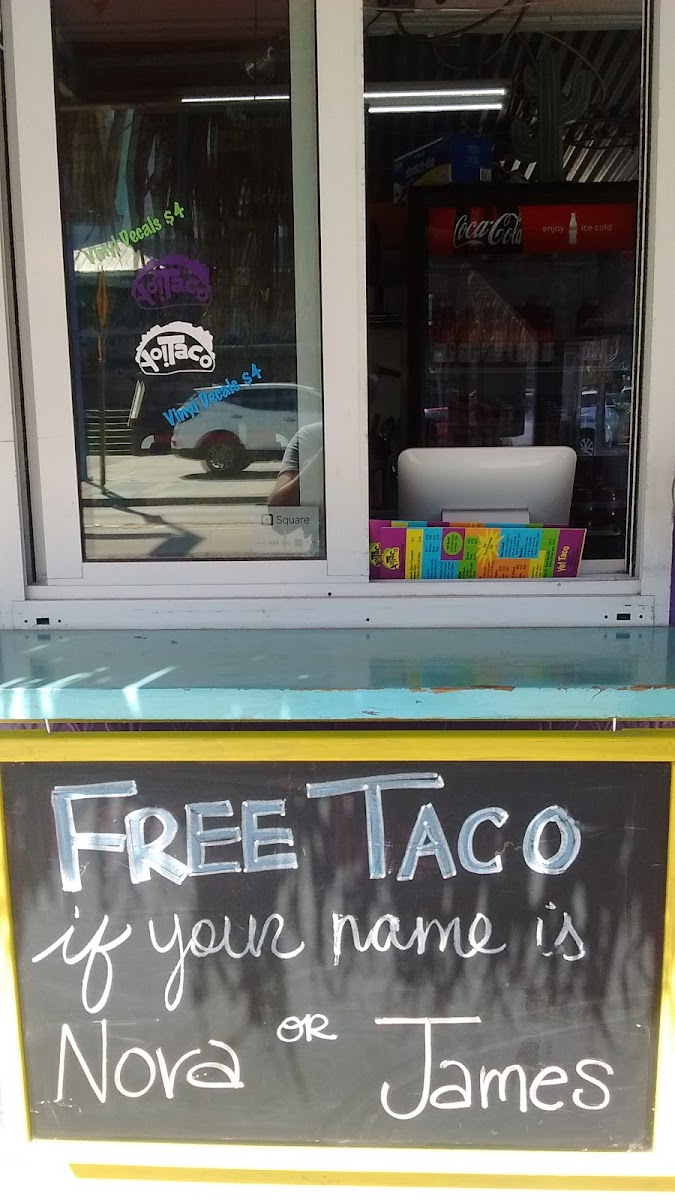 Vinyl Decals $4
Yo!Taco
Yo!Taco
Vinyl Decals $4
Square
Coca-Cola
enjoy ice cold
Yo! Taco
FREE TACO
if your name is
Nora OR James